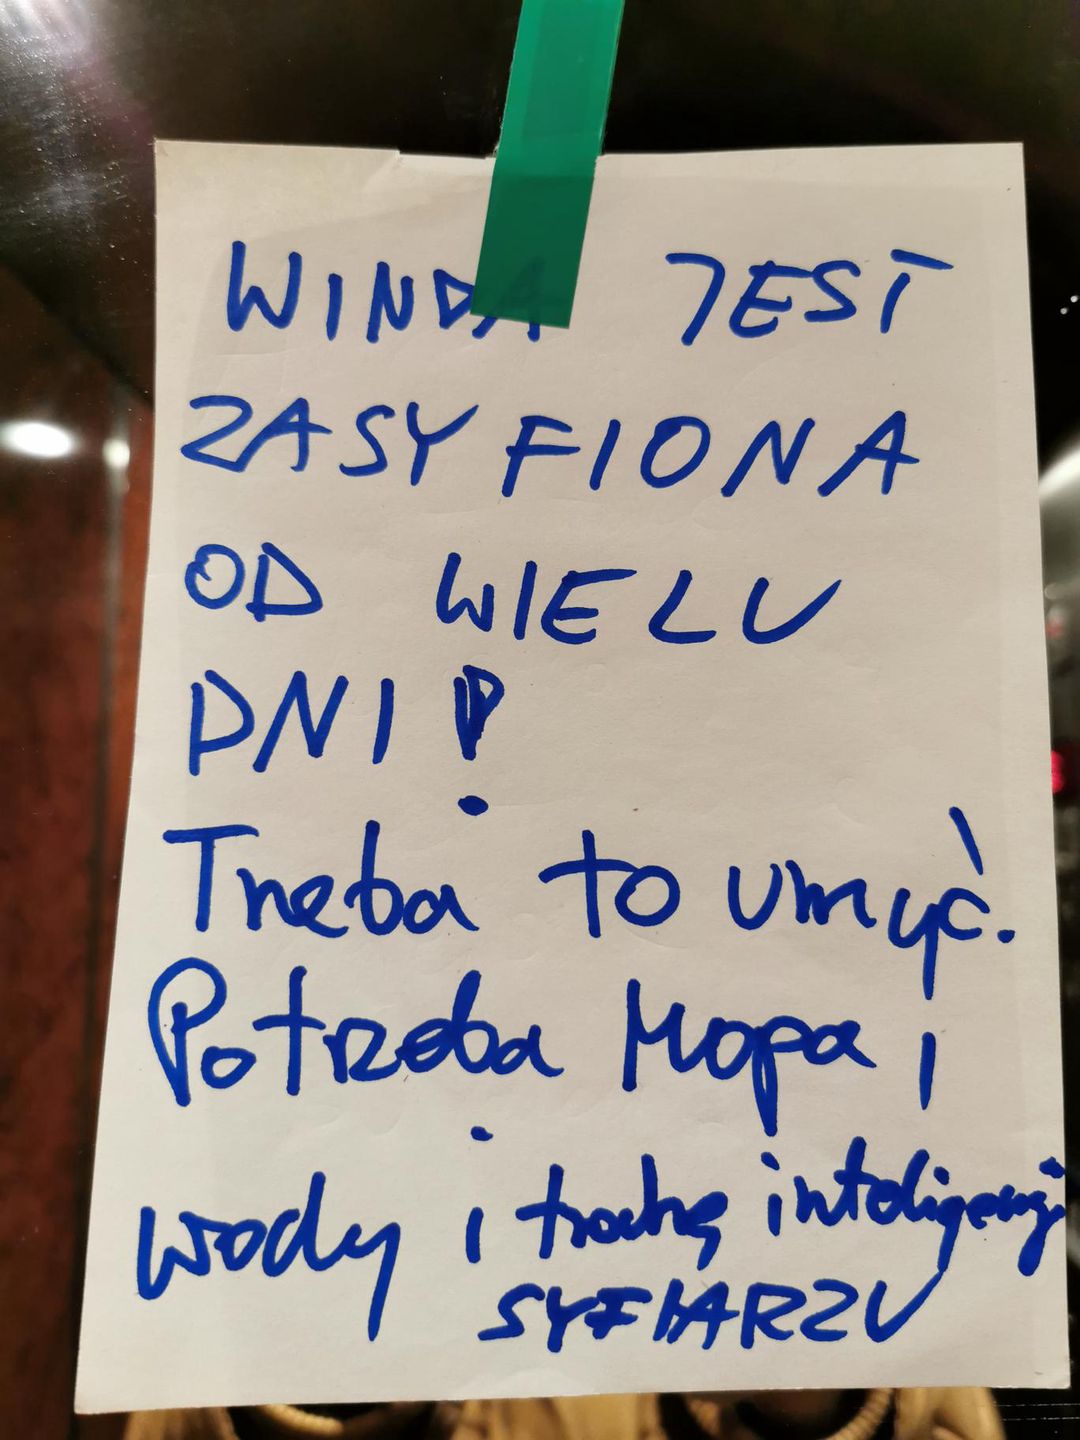 WINDA JEST
ZASYFIONA
OD WIELU
DNI!
Trzeba to umyć.
Potrzeba Mopa i
wody i trochę inteligencji
SYFIARZU